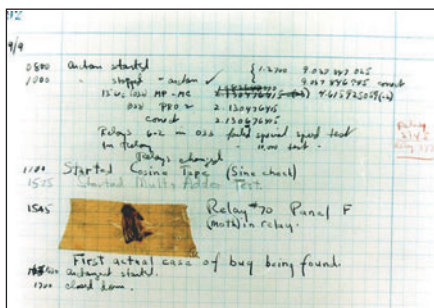 92
9/9
0800 Antan started
1000 " stopped - antan ✓ { 1.2700 9.037 847 025
9.037 846 995 correct
13"UC (032) MP - MC 4.615925059(-2)
(033) PRO 2 2.130476415
correct 2.130676415
Relays 6-2 in 033 failed special speed test
in relay " 10.000 test.
Relays changed
1100 Started Cosine Tape (Sine check)
1525 Started Multi Adder Test.
1545 Relay #70 Panel F
(moth) in relay.
First actual case of bug being found.
antangent started.
1700 closed down.